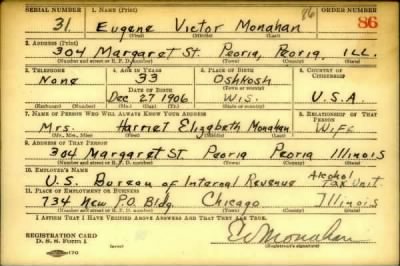 SERIAL NUMBER 1. NAME (Print) ORDER NUMBER
31 Eugene Victor Monahan 86 86
(First) (Middle) (Last)
2. ADDRESS (Print)
304 Margaret St. Peoria, Peoria ILL.
(Number and street or R. F. D. number) (Town) (County) (State)
3. TELEPHONE 4. AGE IN YEARS 5. PLACE OF BIRTH 6. COUNTRY OF CITIZENSHIP
None 33 Oshkosh
DATE OF BIRTH (Town or county)
Dec 27 1906 Wis. U.S.A.
(Exchange) (Number) (Mo.) (Day) (Yr.) (State or country)
7. NAME OF PERSON WHO WILL ALWAYS KNOW YOUR ADDRESS 8. RELATIONSHIP OF THAT PERSON
Mrs. Harriet Elizabeth Monahan Wife
(Mr., Mrs., Miss) (First) (Middle) (Last)
9. ADDRESS OF THAT PERSON
304 Margaret St Peoria Peoria Illinois
(Number and street or R. F. D. number) (Town) (County) (State)
10. EMPLOYER'S NAME
U.S. Bureau of Internal Revenue Alcohol Tax Unit
11. PLACE OF EMPLOYMENT OR BUSINESS
734 New P.O. Bldg. Chicago Illinois
(Number and street or R. F. D. number) (Town) (County) (State)
I AFFIRM THAT I HAVE VERIFIED ABOVE ANSWERS AND THAT THEY ARE TRUE.
REGISTRATION CARD
D. S. S. Form 1 EVMonahan
(Registrant's signature)